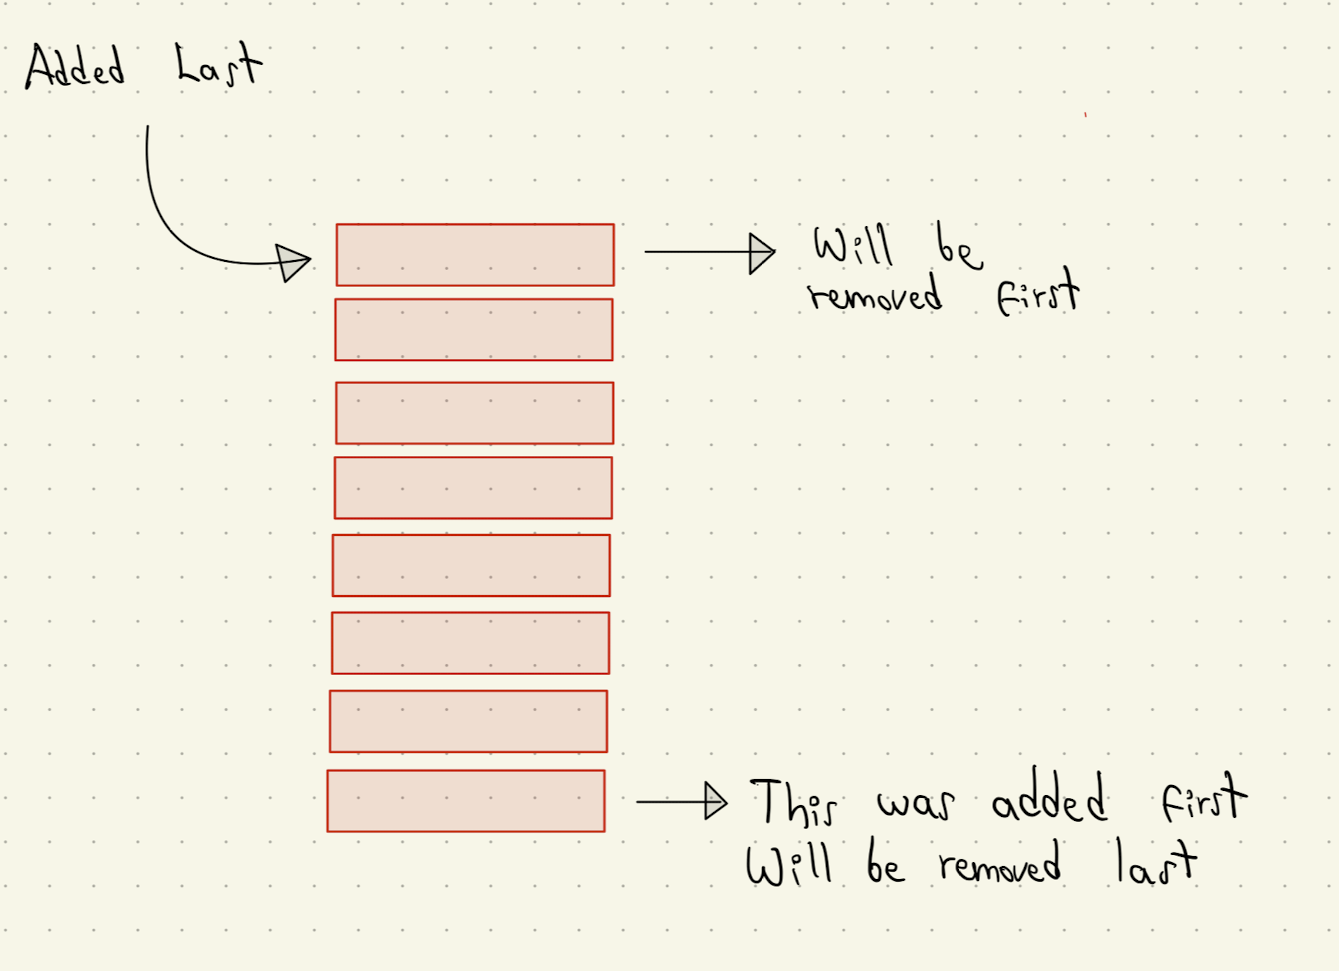 Added Last
Will be
removed first
This was added first
Will be removed last